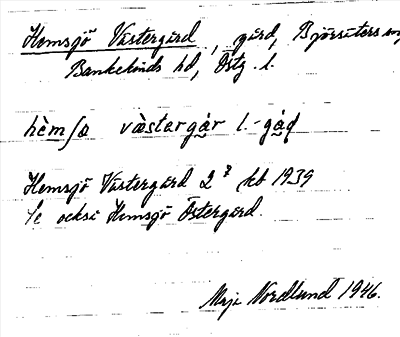 Hemsjö Västergård, gård, Björsäters sn,
Bankekinds hd, Östg. l.
hèmʃø västərgår l. -gáɖ
Hemsjö Västergård 2 kb 1939
Se också Hemsjö Östergård.
Maja Nordlund 1946.